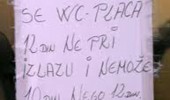 SE WC-PLAĆA
12 DIN NE PRI
IZLAZU I NEMOŽE
10 DIN NEGO 12 DIN.